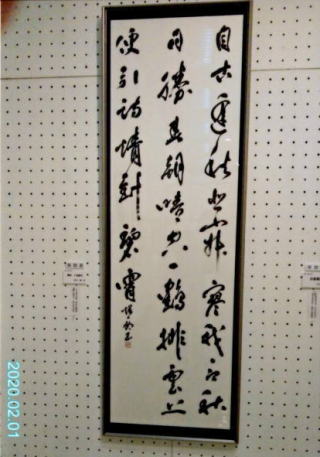 自古逢秋悲寂寥我言秋
日勝春朝晴空一鶴排雲上
便引詩情到碧霄
2020.02.01